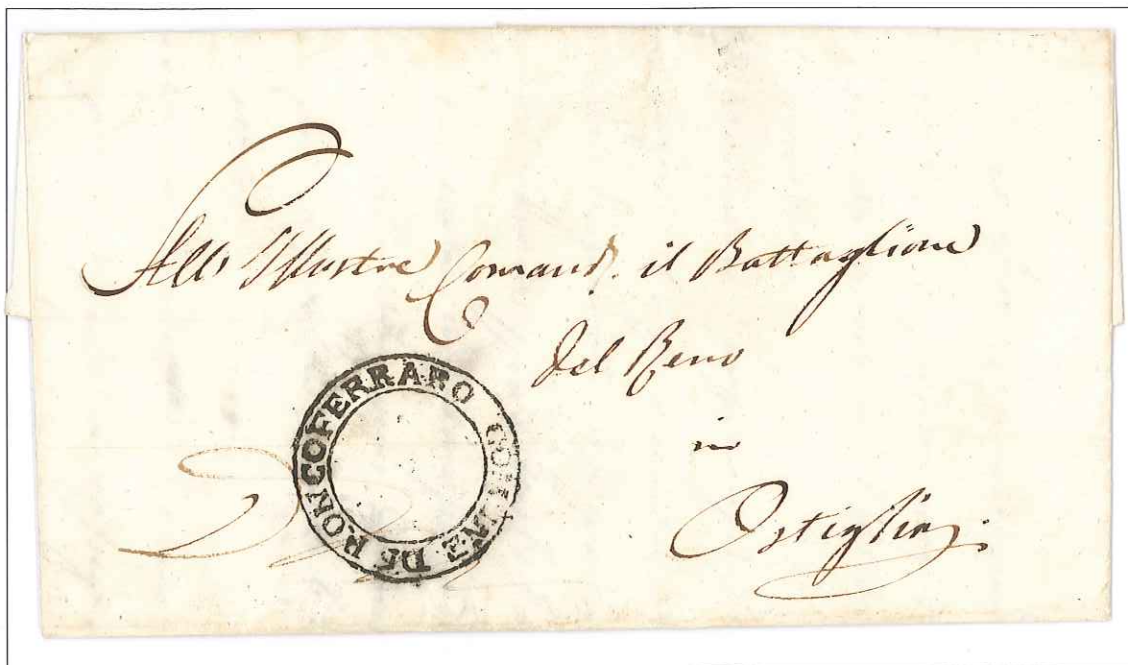 All' Illustre Comand. il Battaglione
del Reno
in
Ostiglia
COMUNE DE RONCOFERRARO